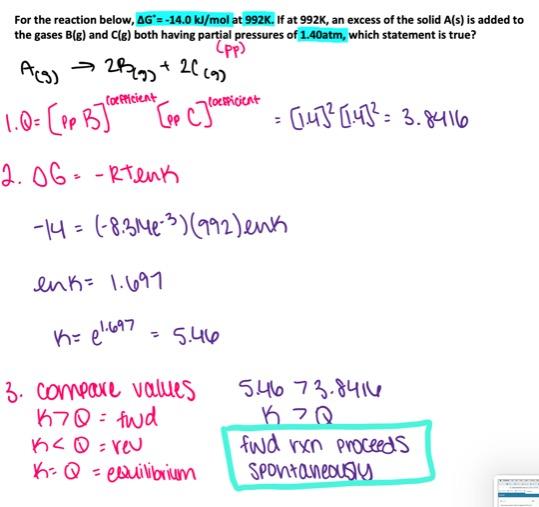 For the reaction below, ΔG°= -14.0 kJ/mol at 992K. If at 992K, an excess of the solid A(s) is added to
the gases B(g) and C(g) both having partial pressures of 1.40atm, which statement is true?
(PP)
A(s) → 2B(g) + 2C(g)
1. Q= [PP B]^coefficient [PP C]^coefficient = [1.4]² [1.4]² = 3.8416
2. ΔG = -RTlnK
-14 = (-8.314e^-3)(992)lnK
lnK= 1.697
K= e^1.697 = 5.46
3. compare values 5.46 > 3.8416
K>Q = fwd K > Q
K<Q = rev fwd rxn proceeds
K=Q = equilibrium spontaneously